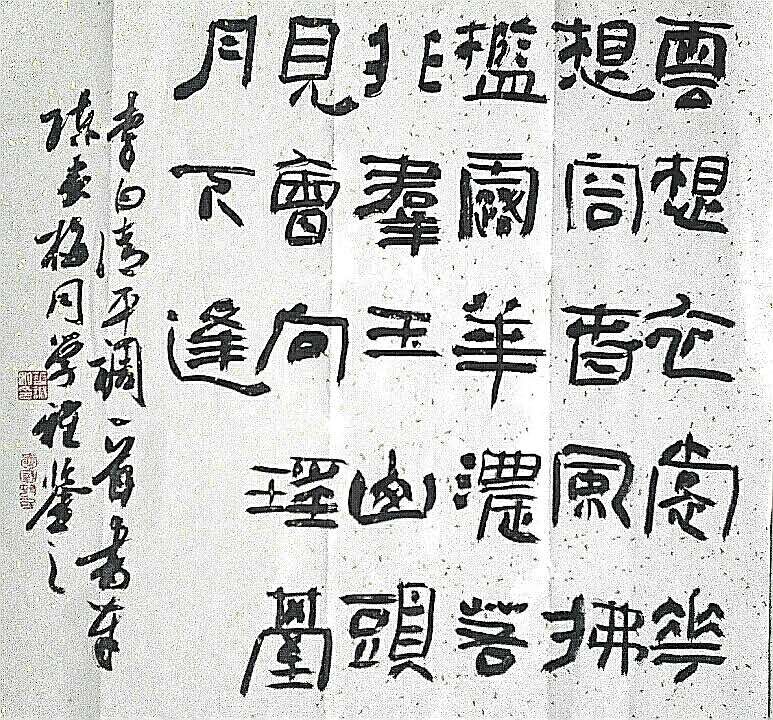 雲想衣裳花
想容春風拂
檻露華濃若
非羣玉山頭
見會向瑤臺
月下逢
李白清平調一首書奉
陳春梅同学雅鑒之